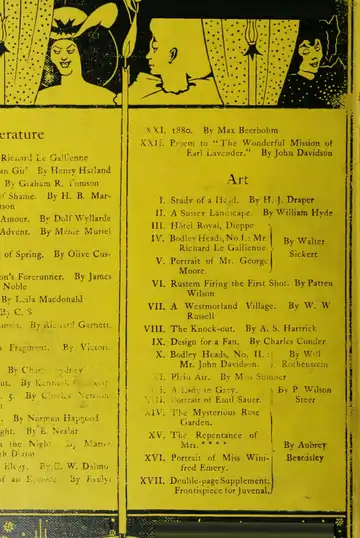 erature
Richard Le Gallienne
an Girl By Henry Harland
By Graham R. Tomson
of Shame. By H. B. Mar-
tson
Amour. By Dolf Wyllarde
Advent. By Ménie Muriel
of Spring. By Olive Cus-
on's Forerunner. By James
Noble
By Leila Macdonald
By C. S
By Richard Garnett.
Fragment. By Victoria
By Charles Sydney
By Kenneth
5. By Charles Newton
By Norman Hapgood
ight. By E. Nesbit
n the Night By Marion
h Dixon
Elegy. By C. W. Dalmon
of an Episode By Evelyn
XXI. 1880. By Max Beerbohm
XXII. Proem to "The Wonderful Mission of
Earl Lavender." By John Davidson
Art
I. Study of a Head. By H. J. Draper
II. A Sussex Landscape. By William Hyde
III. Hôtel Royal, Dieppe
IV. Bodley Heads, No. 1: Mr.
Richard Le Gallienne.
V. Portrait of Mr. George
Moore.
By Walter
Sickert
VI. Rustem Firing the First Shot. By Patten
Wilson
VII. A Westmorland Village. By W. W
Russell
VIII. The Knock-out. By A. S. Hartrick
IX. Design for a Fan. By Charles Conder
X. Bodley Heads, No. II. :
Mr. John Davidson.
By Will
Rothenstein
XI. Plein Air. By Miss Sumner
XII. A Lady in Grey.
XIII. Portrait of Emil Sauer.
By P. Wilson
Steer
XIV. The Mysterious Rose
Garden.
XV. The Repentance of
Mrs. * * * *
XVI. Portrait of Miss Wini-
fred Emery.
XVII. Double-page Supplement:
Frontispiece for Juvenal.
By Aubrey
Beardsley